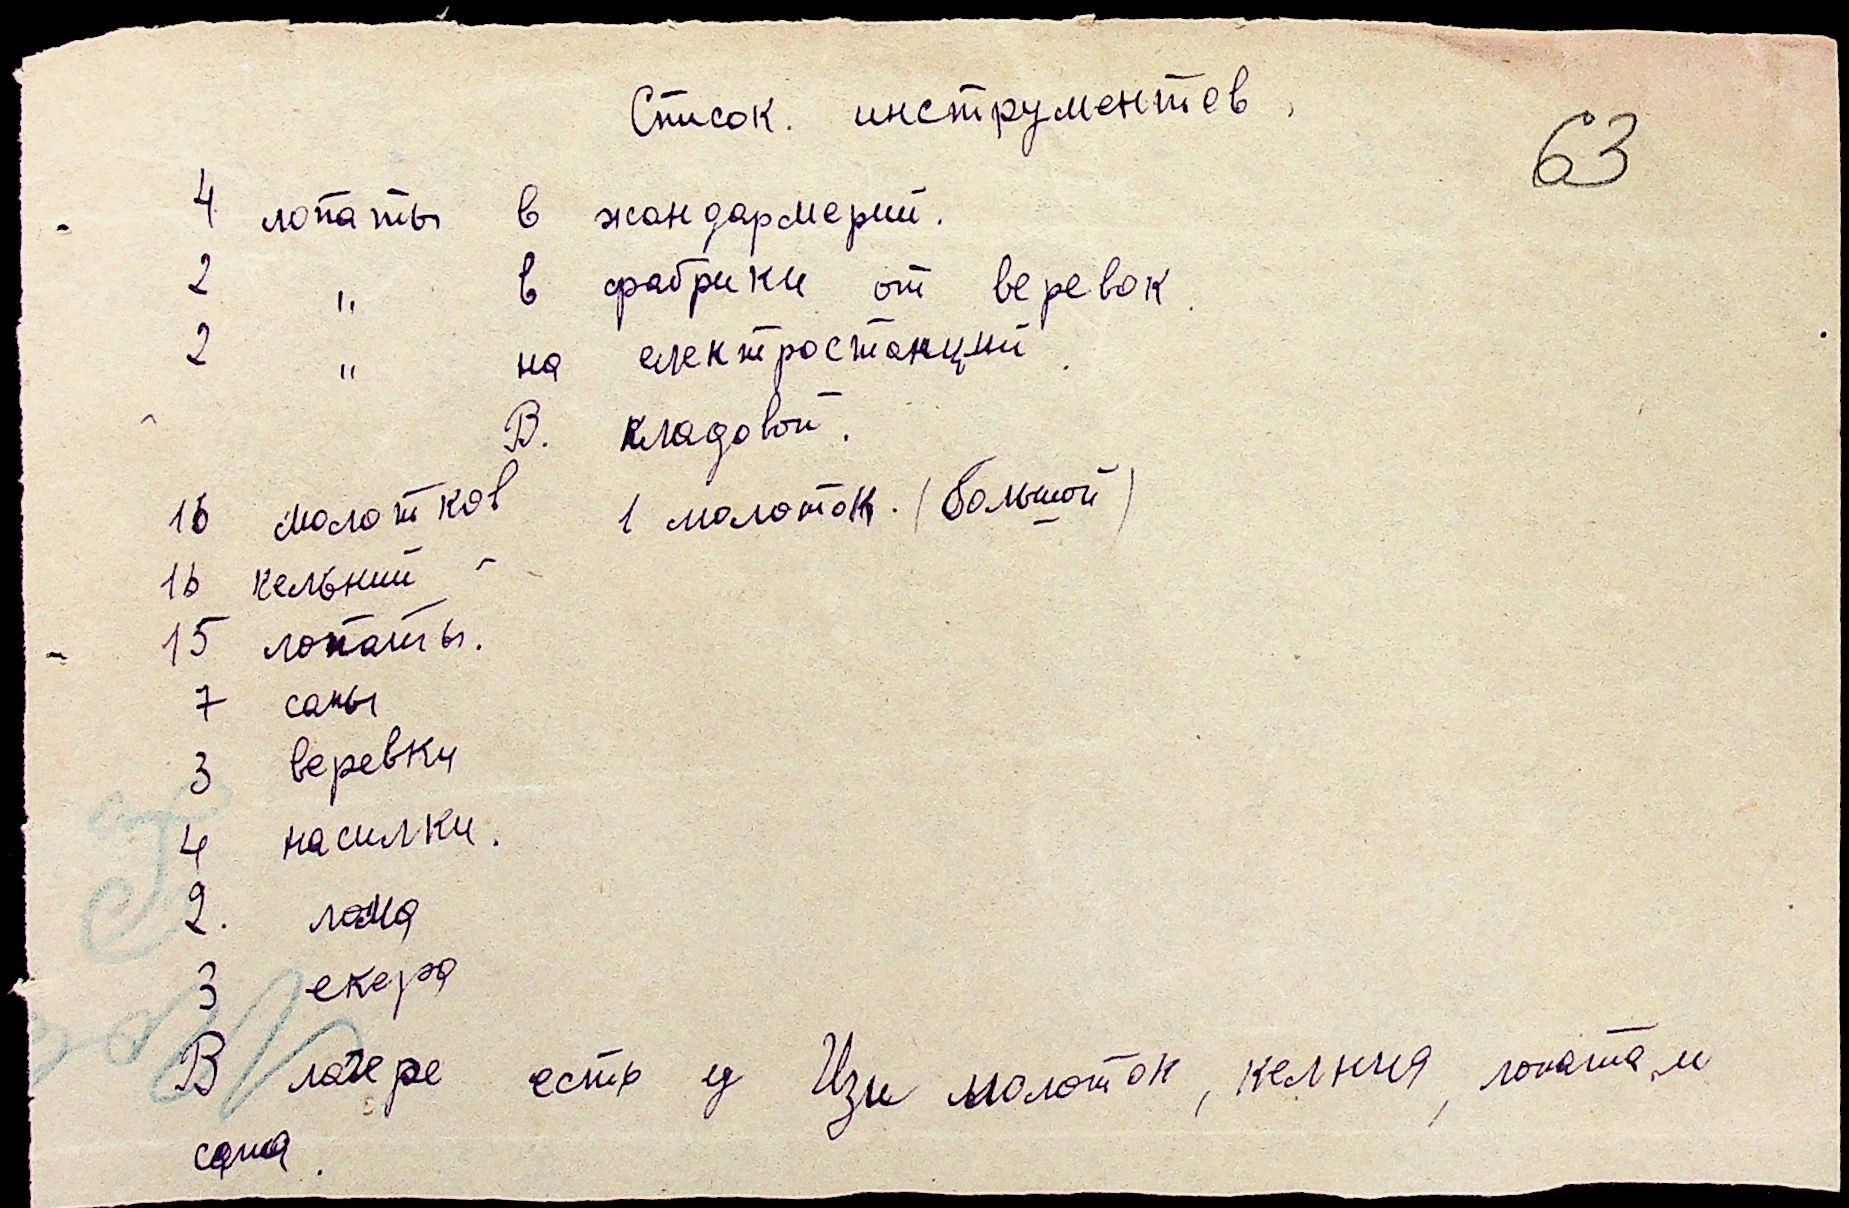 Список. инструментов.
63
4 лопаты в жандармерий.
2 " в фабрики от веревок
2 " на електростанций.
В. кладовой.
16 молотков 1 молоток. (большой)
16 кельний
15 лопаты.
7 сапы
3 веревки
4 насилки.
2. лома
3 екера
В лагере есть у Изи молоток, келния, лопата, и
сапа.